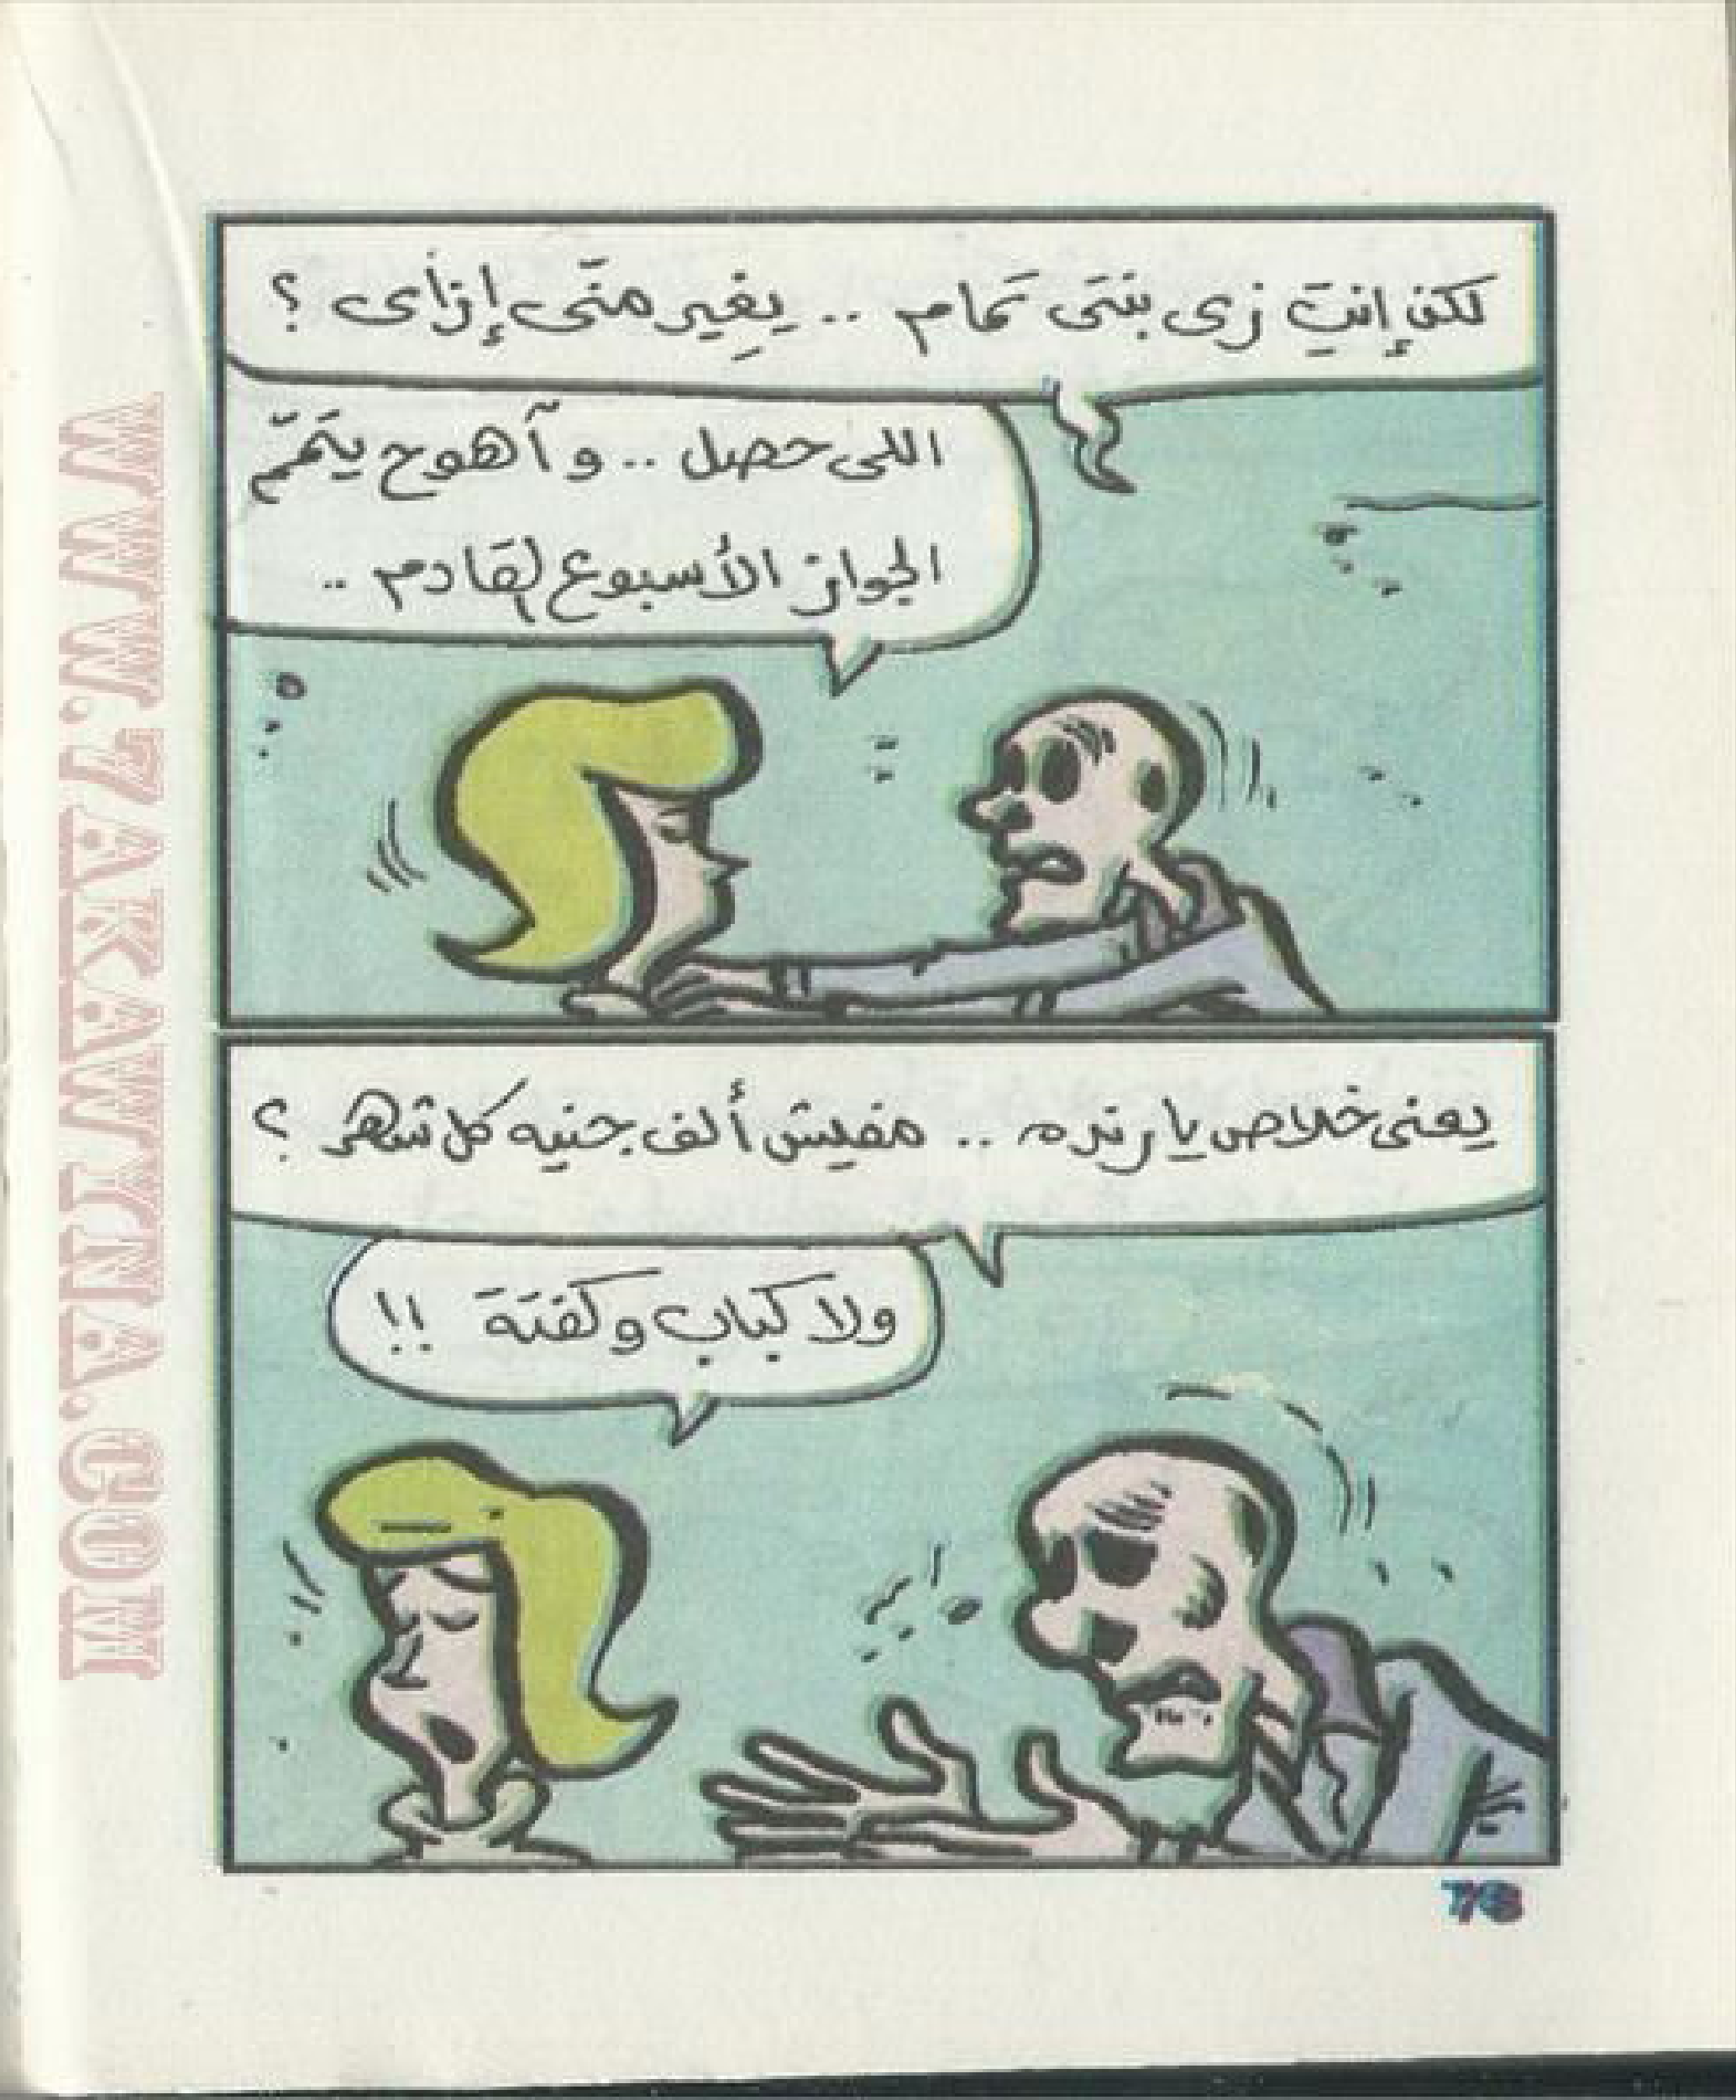 لكن إنتِ زى بنتى تمام .. يِغير منّى إزاى ؟
اللى حصل .. و آهوح يتمّم
الجواز الأسبوع لقادم ..
يعنى خلاص يا رنده .. مفيش ألف جنيه كل شهر ؟
ولا كباب وكفتة !!
78
WWW.7AKAWITNA.COM